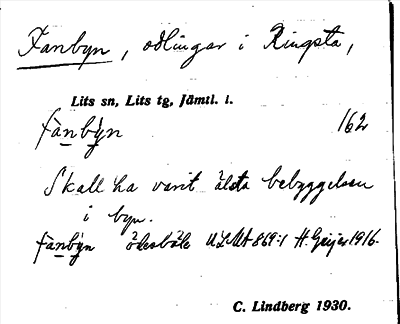 Fanbyn, odlingar i Ringsta,
Lits sn, Lits tg, Jämtl. l.
fànbýn 162
Skall ha varit älsta bebyggelsen
i byn.
fànbýn ödesböle ULMA 869:1 H. Geijer 1916.
C. Lindberg 1930.